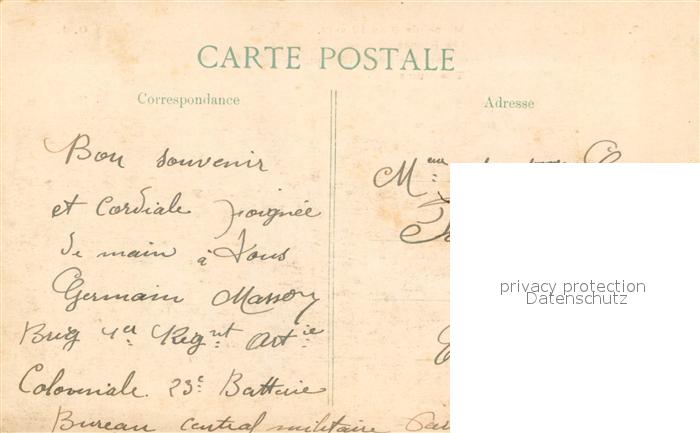 CARTE POSTALE
Correspondance
Adresse
Bon souvenir
et Cordiale poignée
de main à Tous
Germain
Brig 1er Regnt Artie
Coloniale. 23e Batterie
Bureau central militaire
Meur
privacy protection
Datenschutz